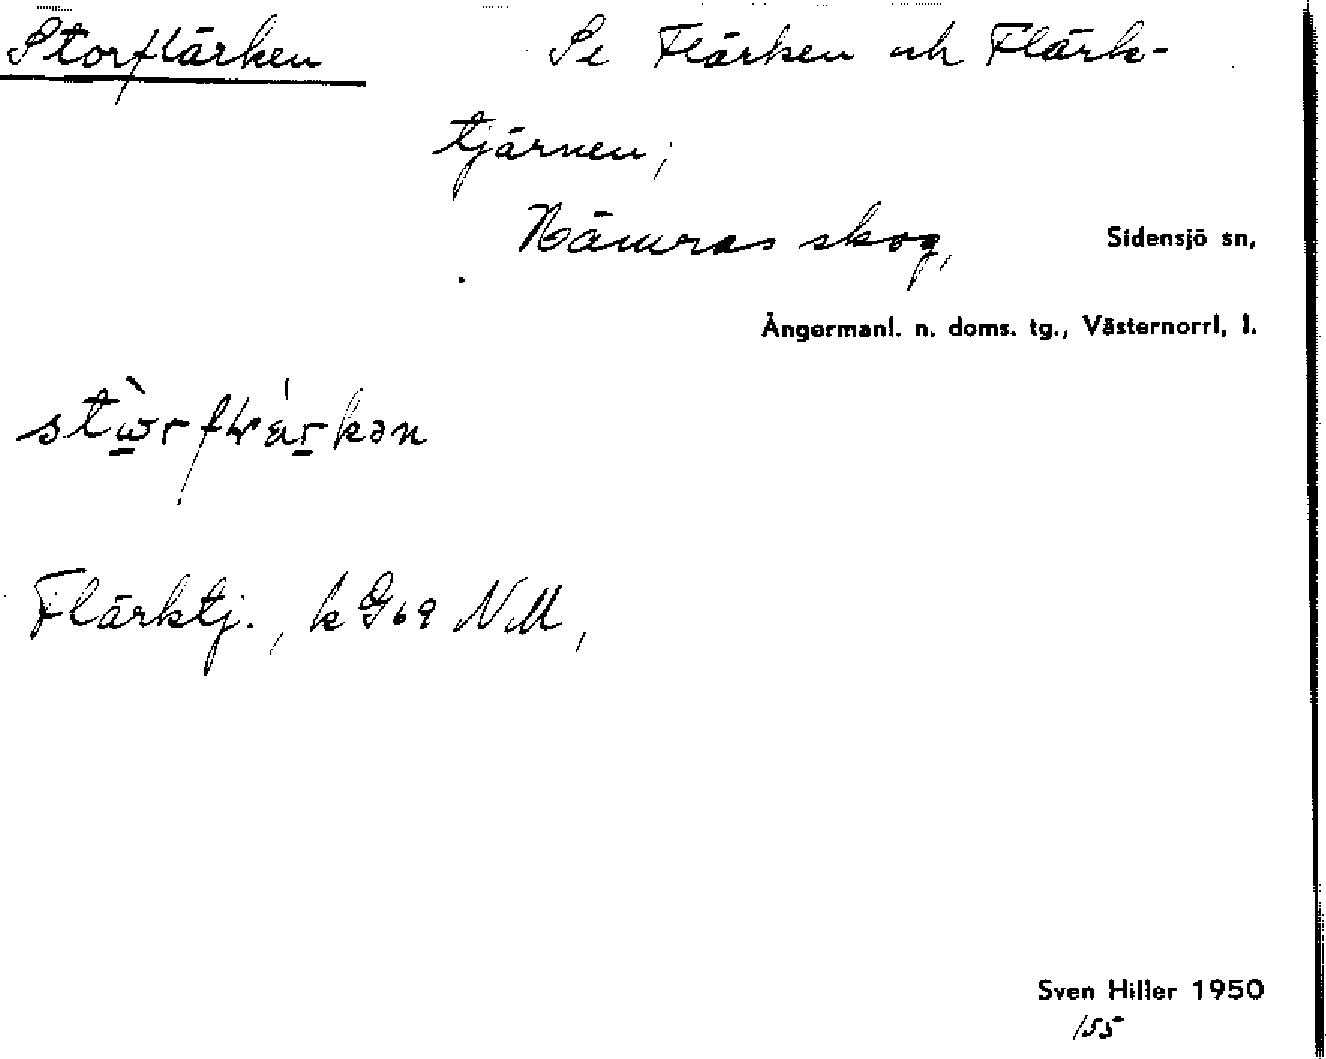 Storflärken Se Flärken och Flärk-
tjärnen;
Nämras skog, Sidensjö sn,
Ångermanl. n. doms. tg., Västernorrl. l.
Flärktj., k G69 NM,
Sven Hiller 1950
155